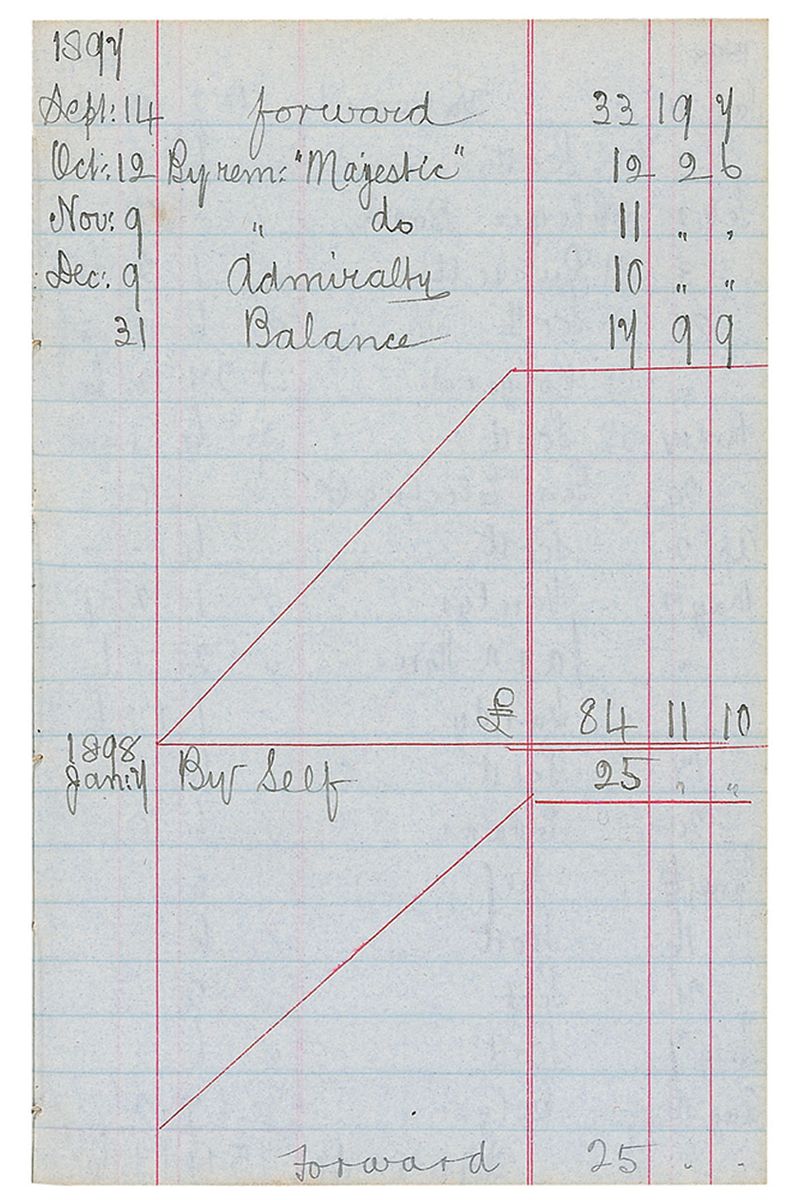 1897
Sept: 14 forward 33 19 7
Oct: 12 By rem: "Majestic" 12 2 6
Nov: 9 " do 11 " "
Dec: 9 Admiralty 10 " "
31 Balance 17 9 9
£ 84 11 10
1898
Jan: 7 By Self 25 " "
Forward 25 . .